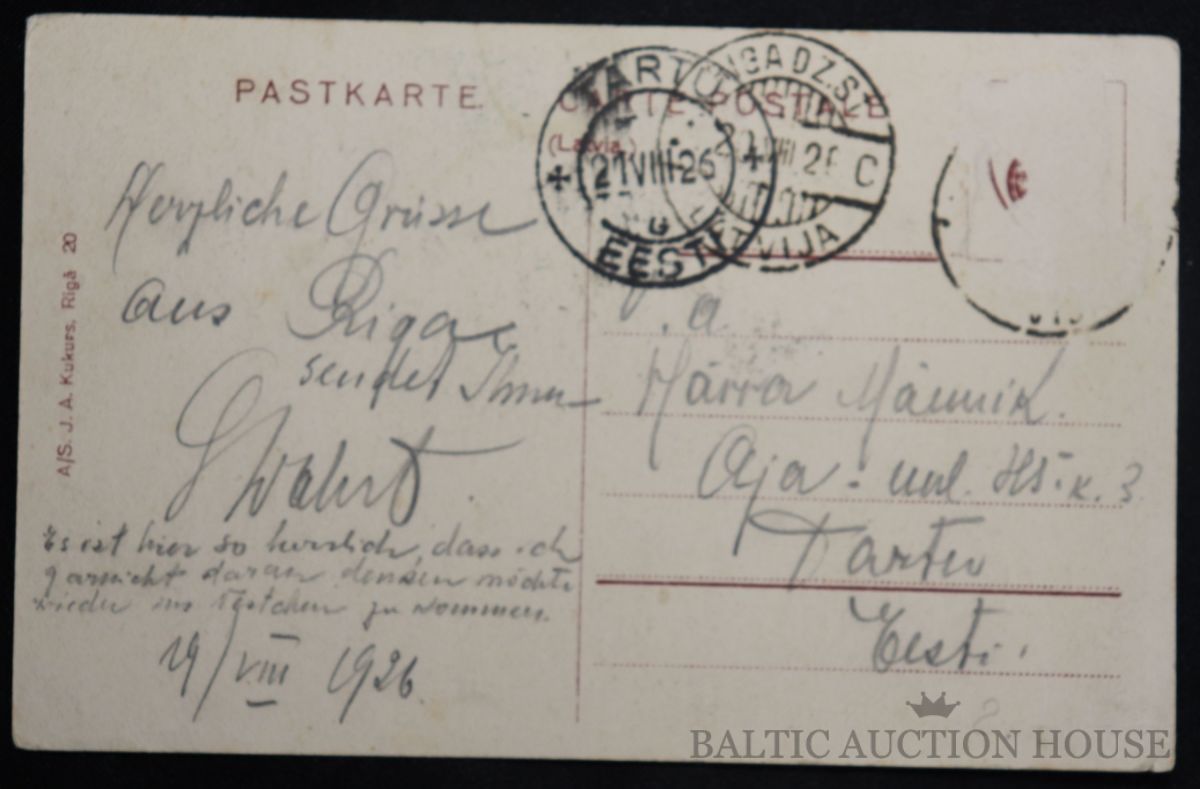 PASTKARTE.
CARTE POSTALE
(Latvia.)
TARTU
21 VIII 26
G
EESTI
RIGA DZ.S.
VIII 26
C
LATVIJA
A/S. J. A. Kukurs, Rīgā 20
Herzliche Grüsse
aus Riga
sendet Ihnen
Es ist hier so herrlich, dass ich
garnicht daran denken möchte
wieder ins zu kommen.
19/VIII 1926.
P. a.
Härra Männik.
Aja-uul. k. 3
Tartu
Eesti.
BALTIC AUCTION HOUSE